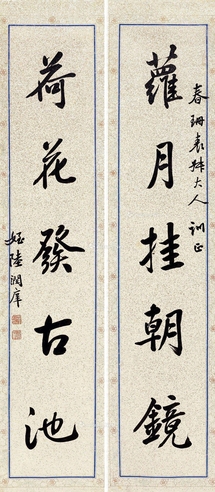 春珊表姊大人 训正
蘿月挂朝鏡
荷花發古池
姪陸潤庠